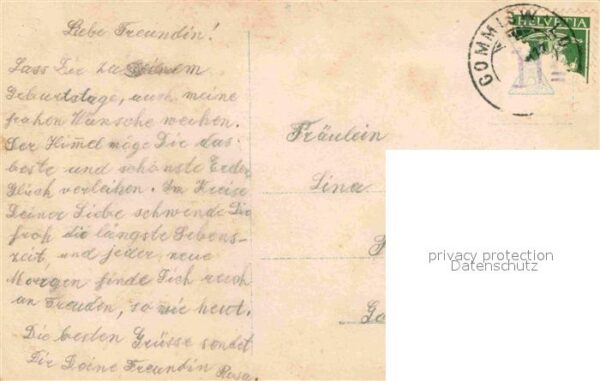 Liebe Freundin!
Lass Dir zu Deinem
Geburtstage, auch meine
frohen Wünsche weihen.
Der Himmel möge Dir das
beste und schönste Erden
Glück verleihen. Im Kreise
Deiner Liebe schwinde Dir
froh die längste Lebens-
zeit und jeder neue
Morgen finde Dich reich
an Freuden, so wie heut.
Die besten Grüsse sendet
Dir Deine Freundin Rosa.
HELVETIA
GOMMISW
Fräulein
Lina
privacy protection
Datenschutz